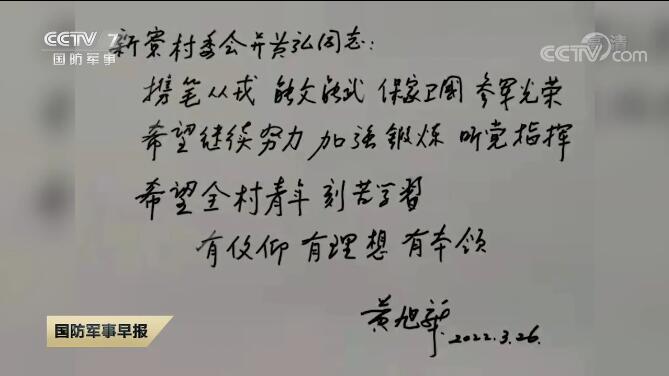 CCTV 7
国防军事
高清
CCTV.com
新寮村委会并黄弘同志:
携笔从戎 能文能武 保家卫国 参军光荣
希望继续努力 加强锻炼 听党指挥
希望全村青年刻苦学习
有信仰 有理想 有本领
黄旭华
2022.3.26.
国防军事早报